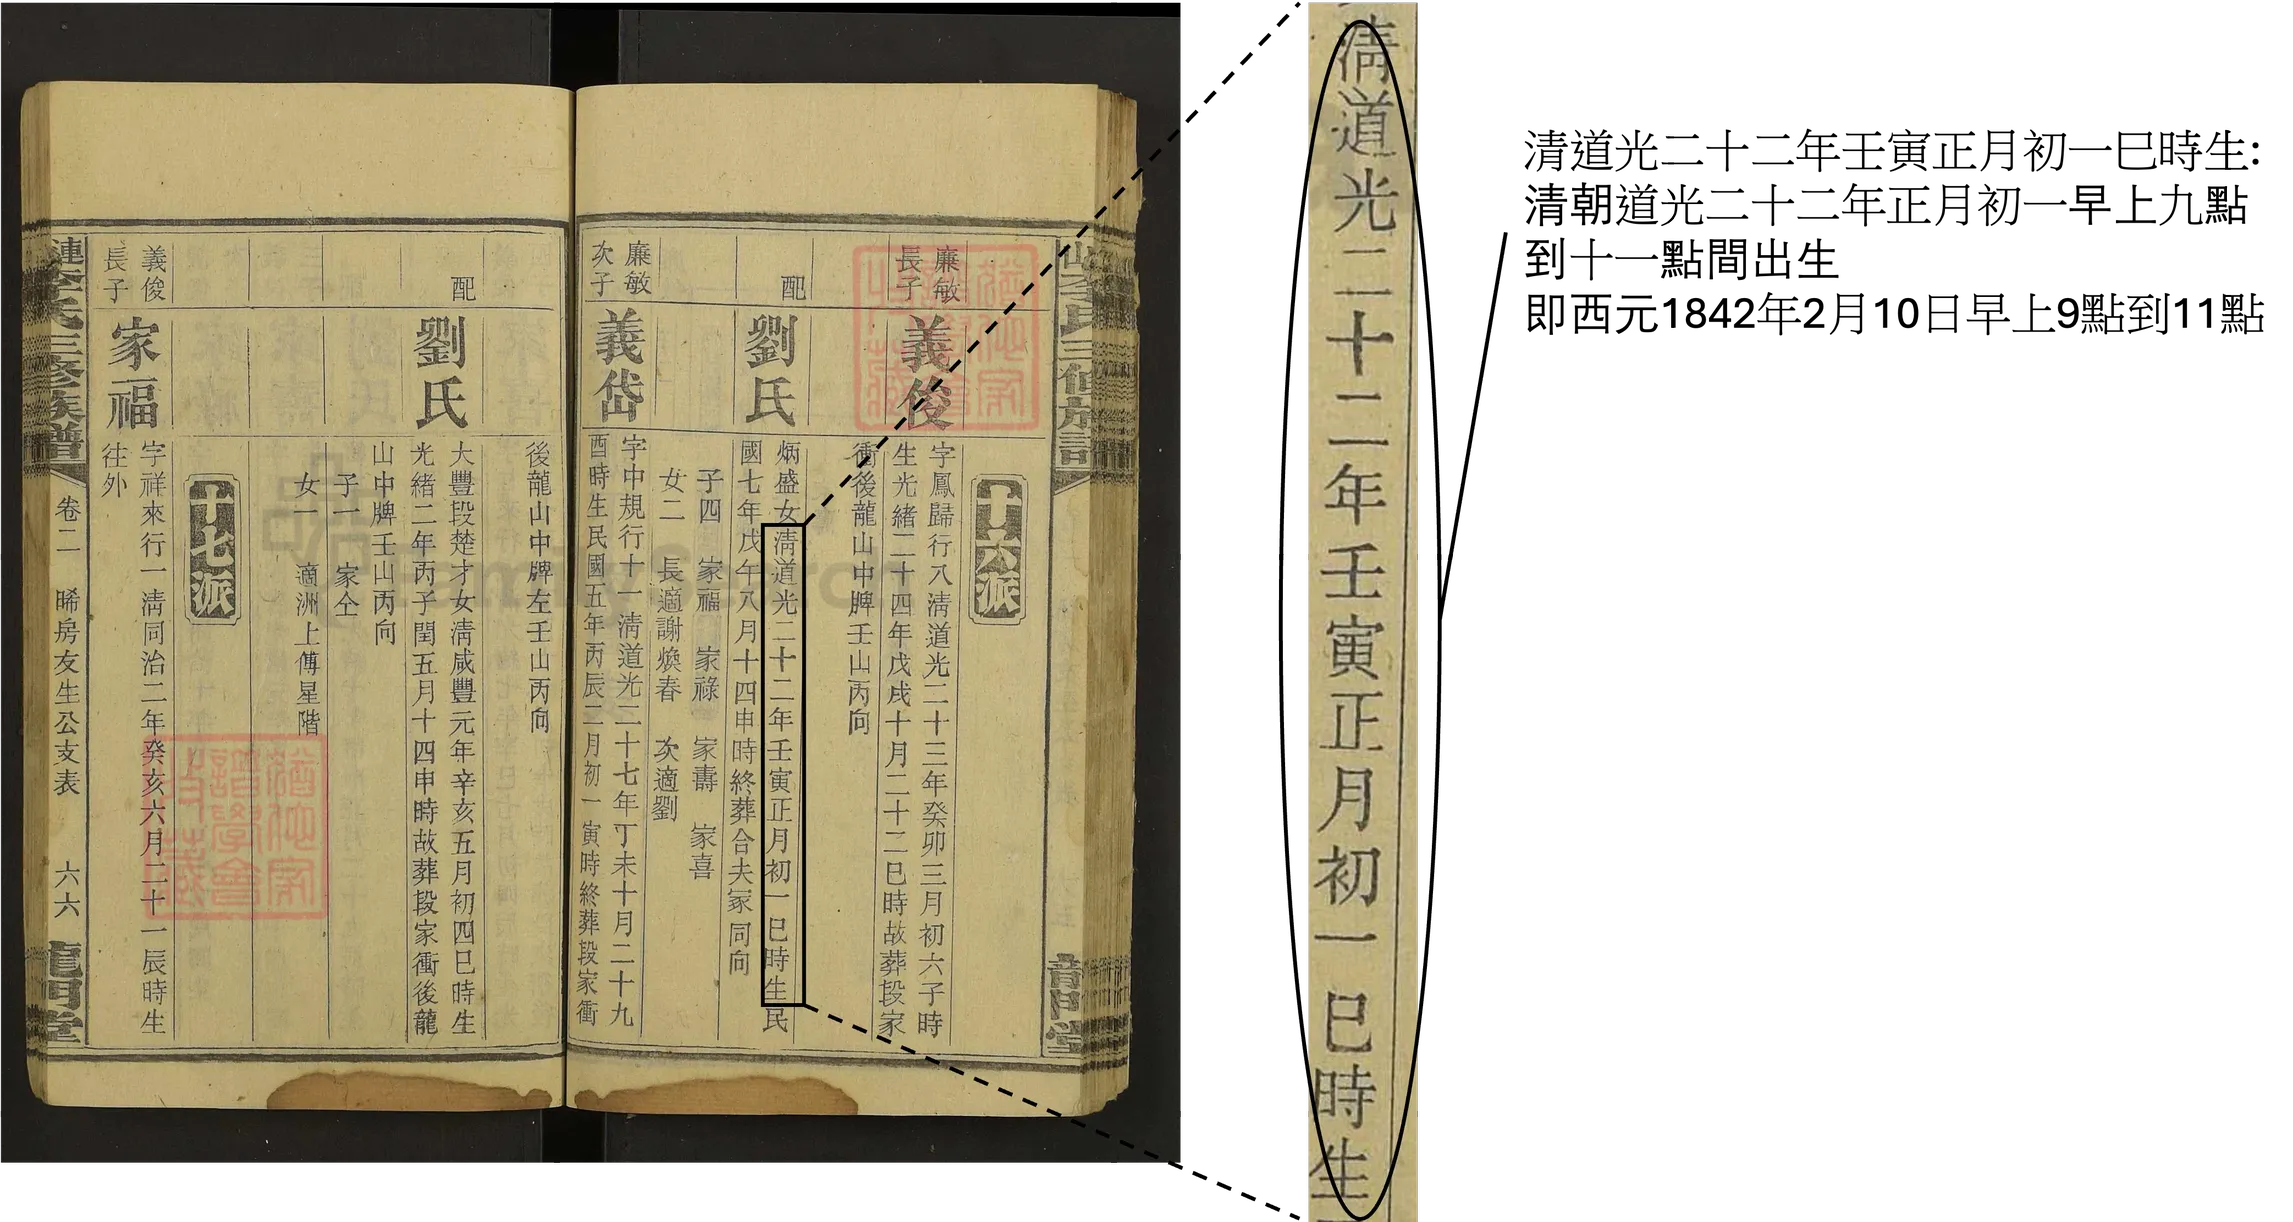 廉敏
長子
義俊
十六派
字鳳歸行八清道光二十三年癸卯三月初六子時
生光緒二十四年戊戌十月二十二巳時故葬段家
衝後龍山中牌壬山丙向
配
劉氏
炳盛女清道光二十二年壬寅正月初一巳時生民
國七年戊午八月十四申時終葬合夫冢同向
子四 家福 家祿 家壽 家喜
女二 長適謝煥春 次適劉
廉敏
次子
義岱
字中規行十一清道光二十七年丁未十月二十九
酉時生民國五年丙辰二月初一寅時終葬段家衝
後龍山中牌左壬山丙向
配
劉氏
大豐段楚才女清咸豐元年辛亥五月初四巳時生
光緒二年丙子閏五月十四申時故葬段家衝後龍
山中牌壬山丙向
子一 家仝
女一 適洲上傅星階
十七派
義俊
長子
家福
字祥來行一清同治二年癸亥六月二十一辰時生
往外
漣李氏三修族譜
卷二 晞房友生公支表 六六
龍門堂
FamilySearch
清道光二十二年壬寅正月初一巳時生
清道光二十二年壬寅正月初一巳時生:
清朝道光二十二年正月初一早上九點
到十一點間出生
即西元1842年2月10日早上9點到11點